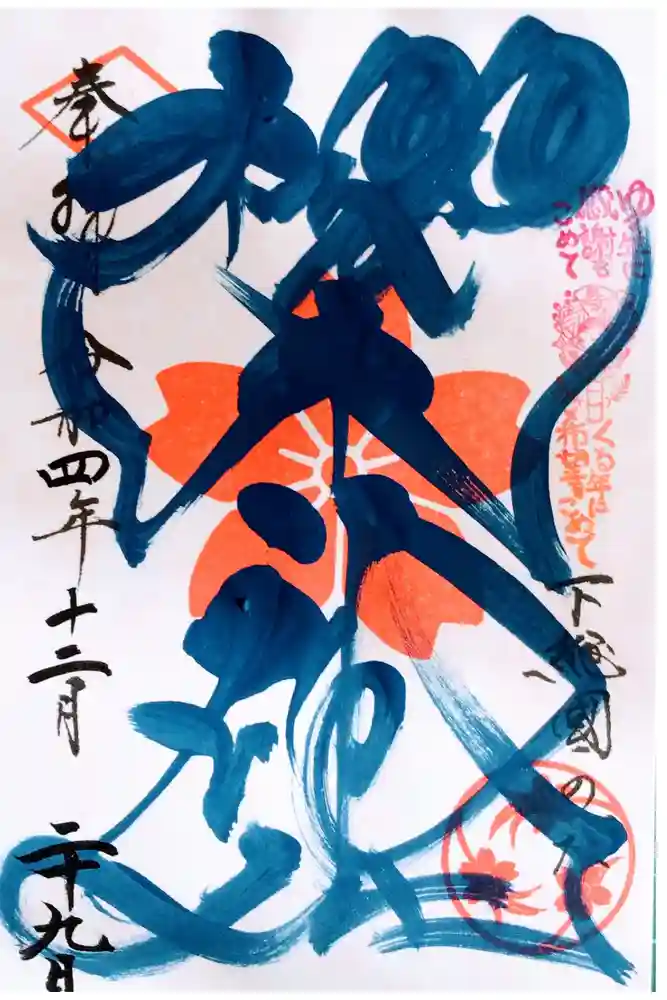 ゆく年に
感謝を
こめて
くる年に
希望をこめて
下總國のだ
櫻木神社
奉拝 令和四年十二月二十九日